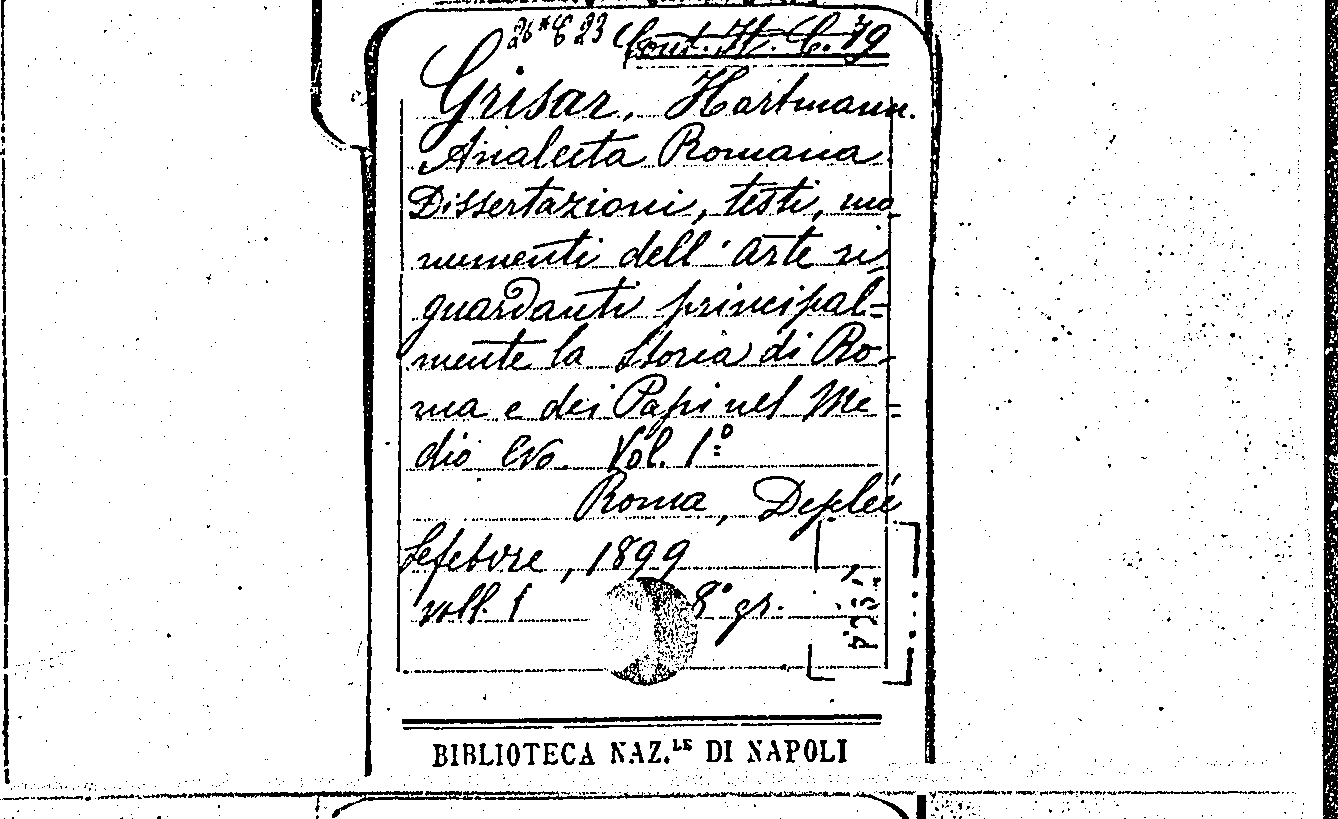 26*C 23 Cont. H. C. 79
Grisar, Hartmann.
Analecta Romana
Dissertazioni, testi, mo-
numenti dell'arte ri-
guardanti principal=
mente la Storia di Ro-
ma e dei Papi nel Me=
dio Evo. Vol. 1º
Roma, Deplée
Lefebvre, 1899
voll. 1 8° gr.
BIBLIOTECA NAZ.LE DI NAPOLI